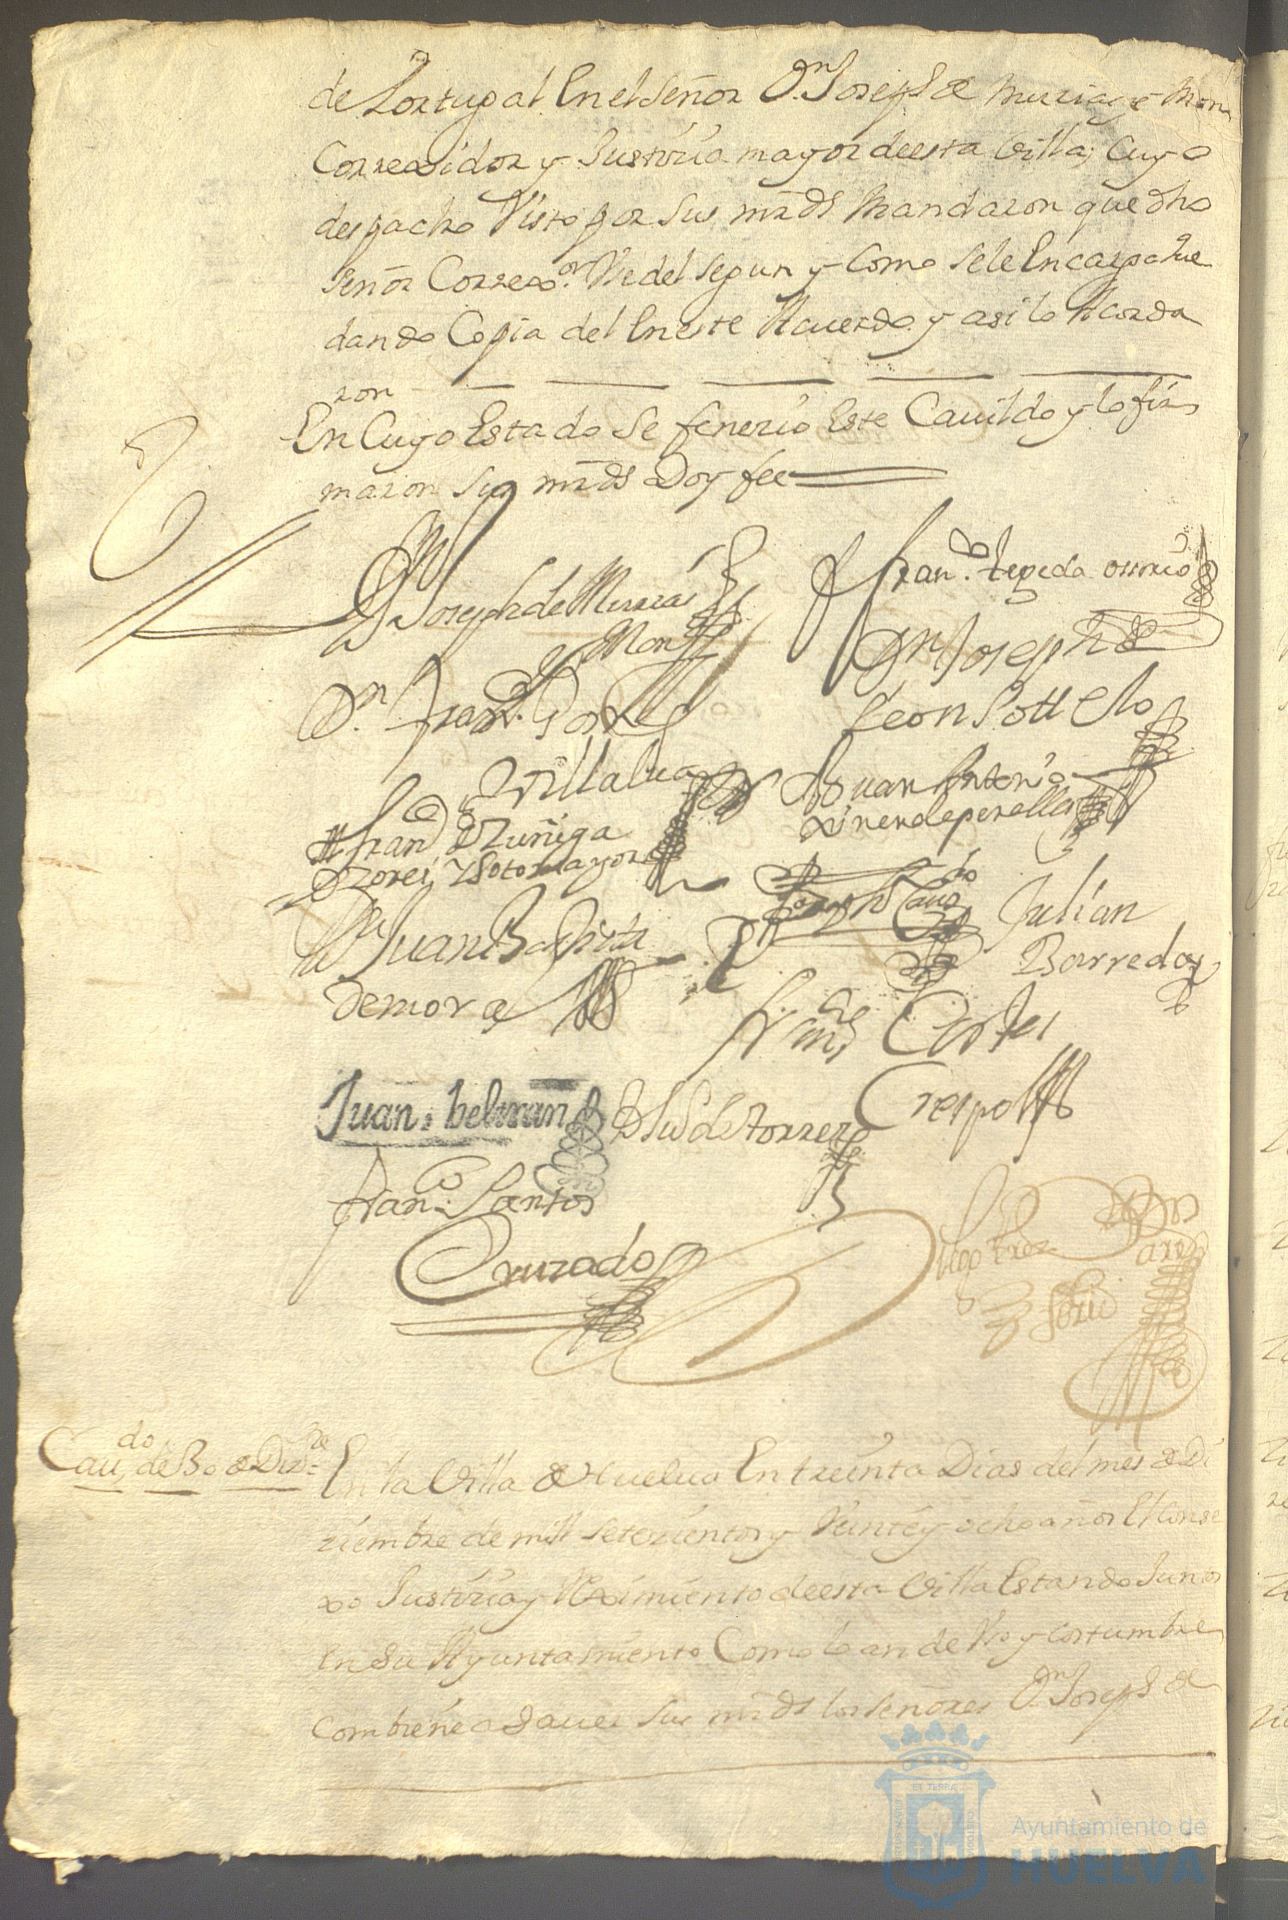 de Portugal En el Señor Dn. Joseph de Muria y Mon
Correxidor y Justizia mayor de esta Villa; Cuyo
despacho Visto por Sus mrds Mandaron que dho
Señor Correxor. Vse del segun y Como se le Encarga que
dando Copia del En este Acuerdo y asi lo Acorda
ron
En Cuyo Estado Se fenezio Este Cauildo y lo fir
maron Sus mrds Doy fee
Dn Joseph de Muria
y Mon
Frano. tepeda osorio
Dn Joseph de
Leon Sottelo
Dn. Franco. Pone
Villalua
Juan Antonio
de perella
Frano. de Zuñiga
y Sotomayor
Dn Juan Baptista
de mora
Joseph
Julian
Barredos
Franco Cortes
Crespo
Juan, beltran
de torres
Frano. Santos
Cruzado
Diego Perez
Caudo. de 30 de Dizre
En la Villa de Huelua En treinta Dias del mes de Di
ziembre de mill Setezientos y Veinte y ocho años El Conse
xo Justizia y Reximiento de esta Villa Estando Juntos
en Su Ayuntamiento Como lo an de Vso y costumbre
combiene a Sauer Sus mrds los Señores Dn. Joseph de
ET TERRAE
Ayuntamiento de
HUELVA